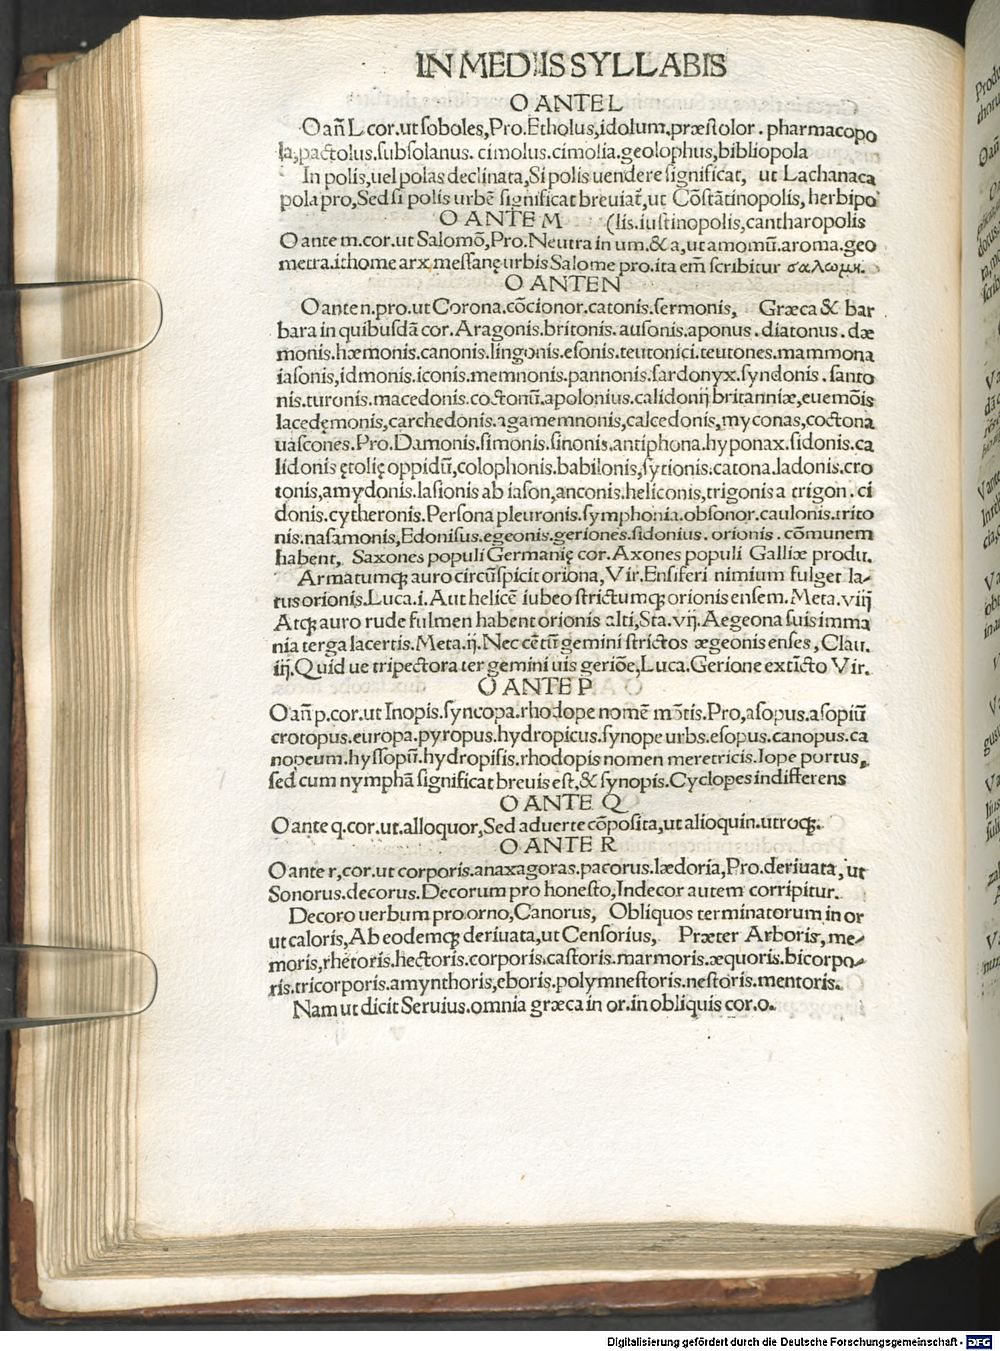 IN MEDIIS SYLLABIS
O ANTE L
O añ L cor.ut soboles,Pro.Etholus,idolum.præstolor.pharmacopo
la,pactolus.subsolanus.cimolus.cimolia.geolophus,bibliopola
In polis,uel polas declinata,Si polis uendere significat, ut Lachanaca
pola pro,Sed si polis urbē significat breuiat̃,ut Cōstātinopolis, herbipo
O ANTE M (lis.iustinopolis,cantharopolis
O ante m.cor.ut Salomō,Pro.Neutra in um.& a,ut amomū.aroma.geo
metra.ithome arx,messanę urbis Salome pro.ita em̄ scribitur σαλωμη.
O ANTEN
O ante n.pro.ut Corona.cōcionor.catonis.sermonis, Græca & bar
bara in quibusdā cor.Aragonis.britonis.ausonis.aponus.diatonus.dæ
monis.hæmonis.canonis.lingonis.esonis.teutonici.teutones.mammona
iasonis,idmonis.iconis.memnonis.pannonis.sardonyx.syndonis.santo
nis.turonis.macedonis.coctonū.apolonius.calidonij britanniæ,euemōis
lacedęmonis,carchedonis.agamemnonis,calcedonis,myconas,coctona
uascones.Pro.Damonis.simonis.sinonis.antiphona.hyponax.sidonis.ca
lidonis ętolię oppidū,colophonis.babilonis,sytionis.catona.ladonis.cro
tonis,amydonis.lasionis ab iason,anconis.heliconis,trigonis a trigon.ci
donis.cytheronis.Persona pleuronis.symphonia.obsonor.caulonis.trito
nis.nasamonis,Edonisus.egeonis.geriones.sidonius.orionis.cōmunem
habent, Saxones populi Germanię cor.Axones populi Galliæ produ.
Armatumq; auro circūspicit oriona,Vir.Ensiferi nimium fulget la-
tus orionis.Luca.i.Aut helicē iubeo strictumq; orionis ensem.Meta.viij
Atq; auro rude fulmen habent orionis alti,Sta.vij.Aegeona suis imma
nia terga lacertis.Meta.ij.Nec cētū gemini strictos ægeonis enses,Clau.
iij.Quid ue tripectora tergemini uis geriōe,Luca.Gerione extīcto Vir.
O ANTE P
O añ p.cor.ut Inopis.syncopa.rhodope nomē mōtis.Pro,asopus.asopiū
crotopus.europa.pyropus.hydropicus.synope urbs.esopus.canopus.ca
nopeum.hyssopū.hydropisis.rhodopis nomen meretricis.Iope portus,
sed cum nymphā significat breuis est,& synopis.Cyclopes indifferens
O ANTE Q
O ante q.cor.ut.alloquor,Sed aduerte cōposita,ut alioquin.utroq;.
O ANTE R
O ante r,cor.ut corporis.anaxagoras.pacorus.lædoria,Pro.deriuata,ut
Sonorus.decorus.Decorum pro honesto,Indecor autem corripitur.
Decoro uerbum pro orno,Canorus, Obliquos terminatorum in or
ut caloris,Ab eodemq; deriuata,ut Censorius, Præter Arboris,me-
moris,rhetoris.hectoris.corporis.castoris.marmoris.æquoris.bicorpo-
ris.tricorporis.amynthoris,eboris.polymnestoris.nestoris.mentoris.
Nam ut dicit Seruius.omnia græca in or.in obliquis cor.o.
Digitalisierung gefördert durch die Deutsche Forschungsgemeinschaft - DFG